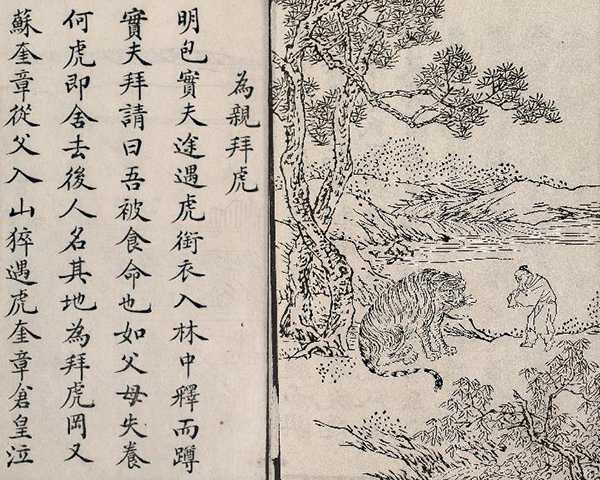 為親拜虎
明包實夫途遇虎銜衣入林中釋而蹲
實夫拜請曰吾被食命也如父母失養
何虎即舍去後人名其地為拜虎岡又
蘇奎章從父入山猝遇虎奎章倉皇泣